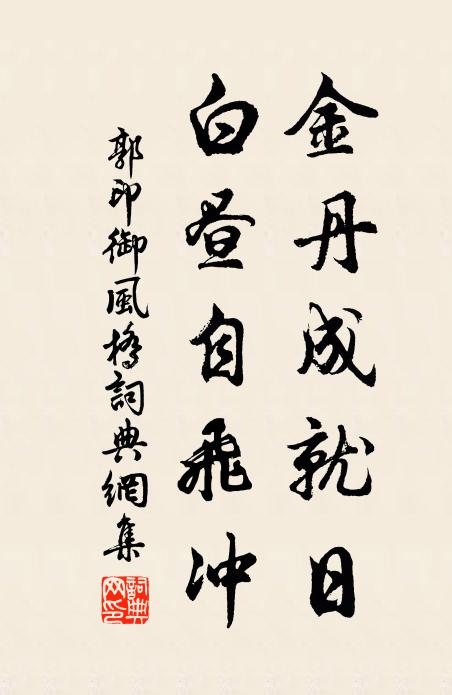 金丹成就日
白昼自飛冲
郭印御風橋詞典網集
詞典网印